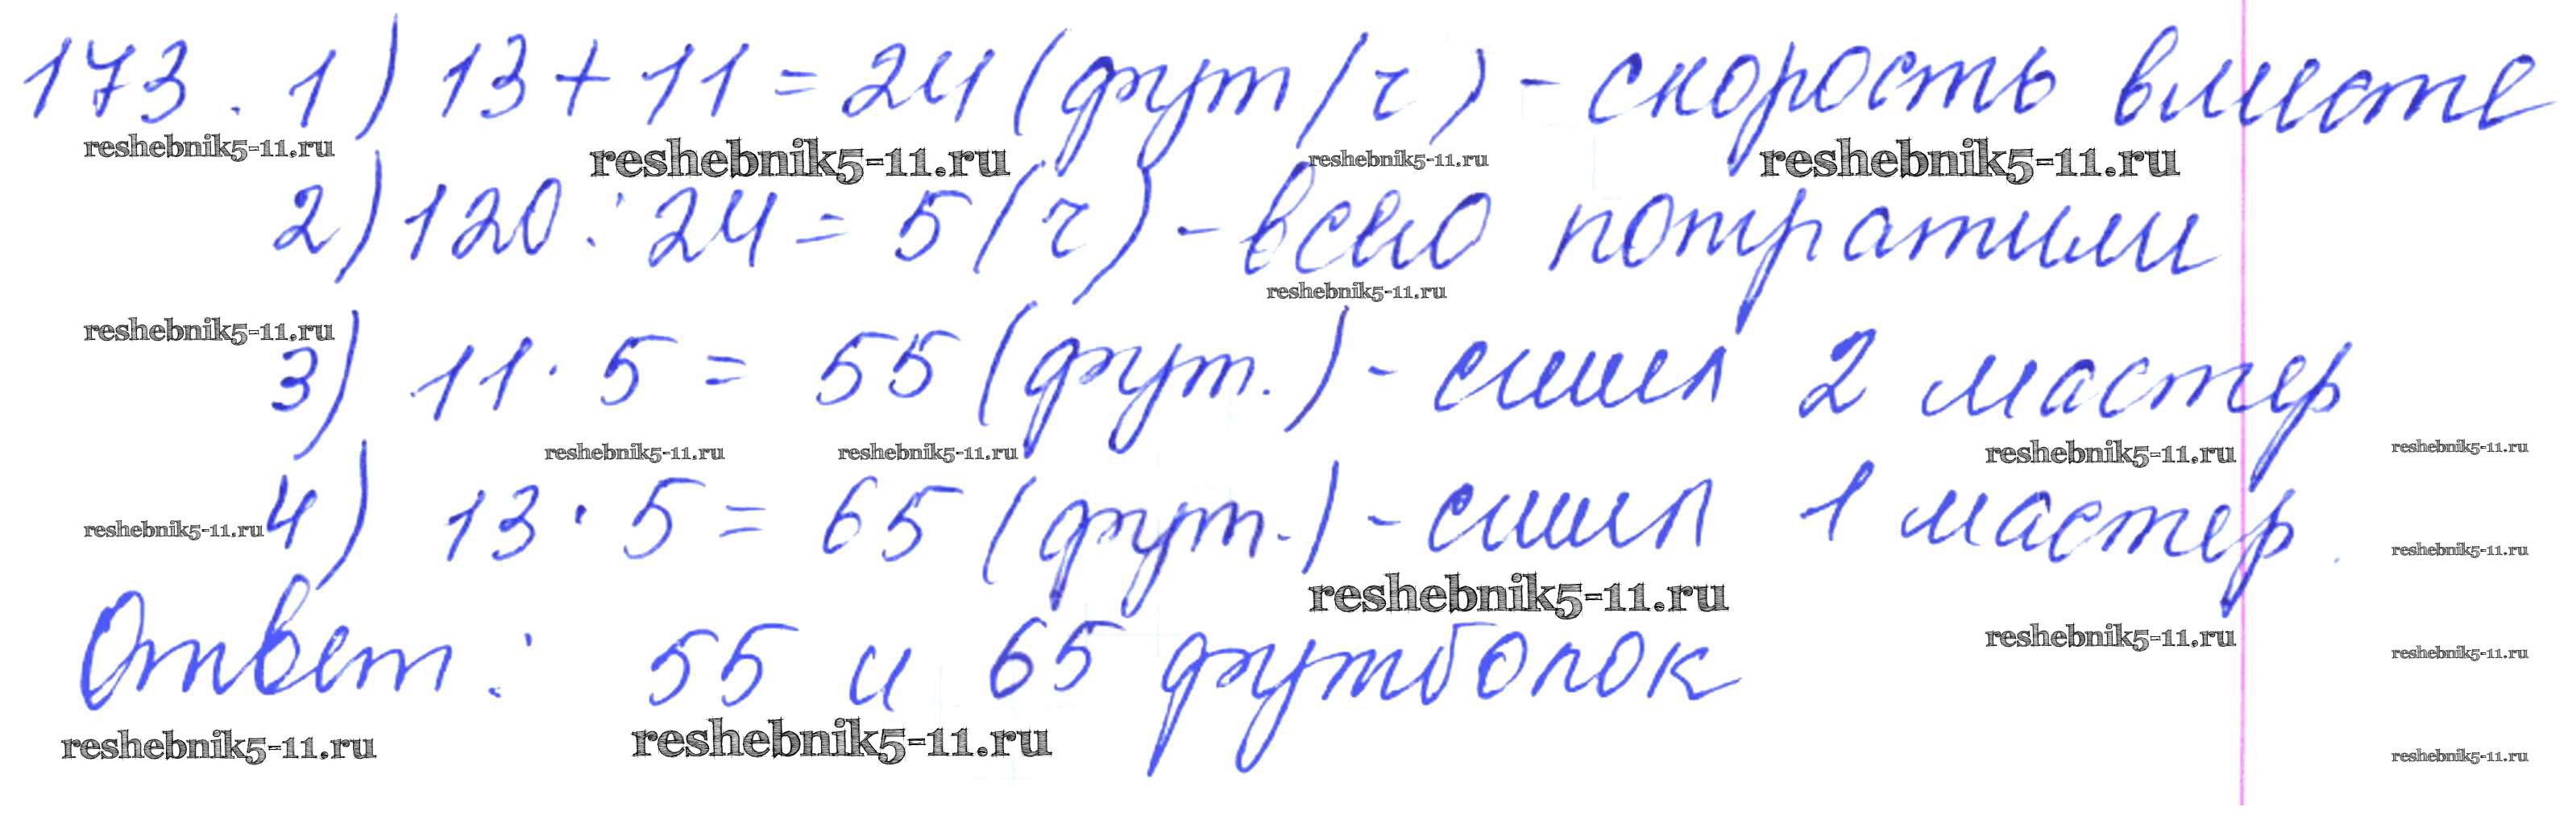 173. 1) 13 + 11 = 24 (фут/ч) - скорость вместе
reshebnik5-11.ru reshebnik5-11.ru reshebnik5-11.ru reshebnik5-11.ru
2) 120 : 24 = 5 (ч) - всего потратили
reshebnik5-11.ru
reshebnik5-11.ru
3) 11 · 5 = 55 (фут.) - сшил 2 мастер
reshebnik5-11.ru reshebnik5-11.ru reshebnik5-11.ru reshebnik5-11.ru
4) 13 · 5 = 65 (фут.) - сшил 1 мастер.
reshebnik5-11.ru reshebnik5-11.ru
reshebnik5-11.ru
Ответ: 55 и 65 футболок
reshebnik5-11.ru reshebnik5-11.ru
reshebnik5-11.ru reshebnik5-11.ru reshebnik5-11.ru